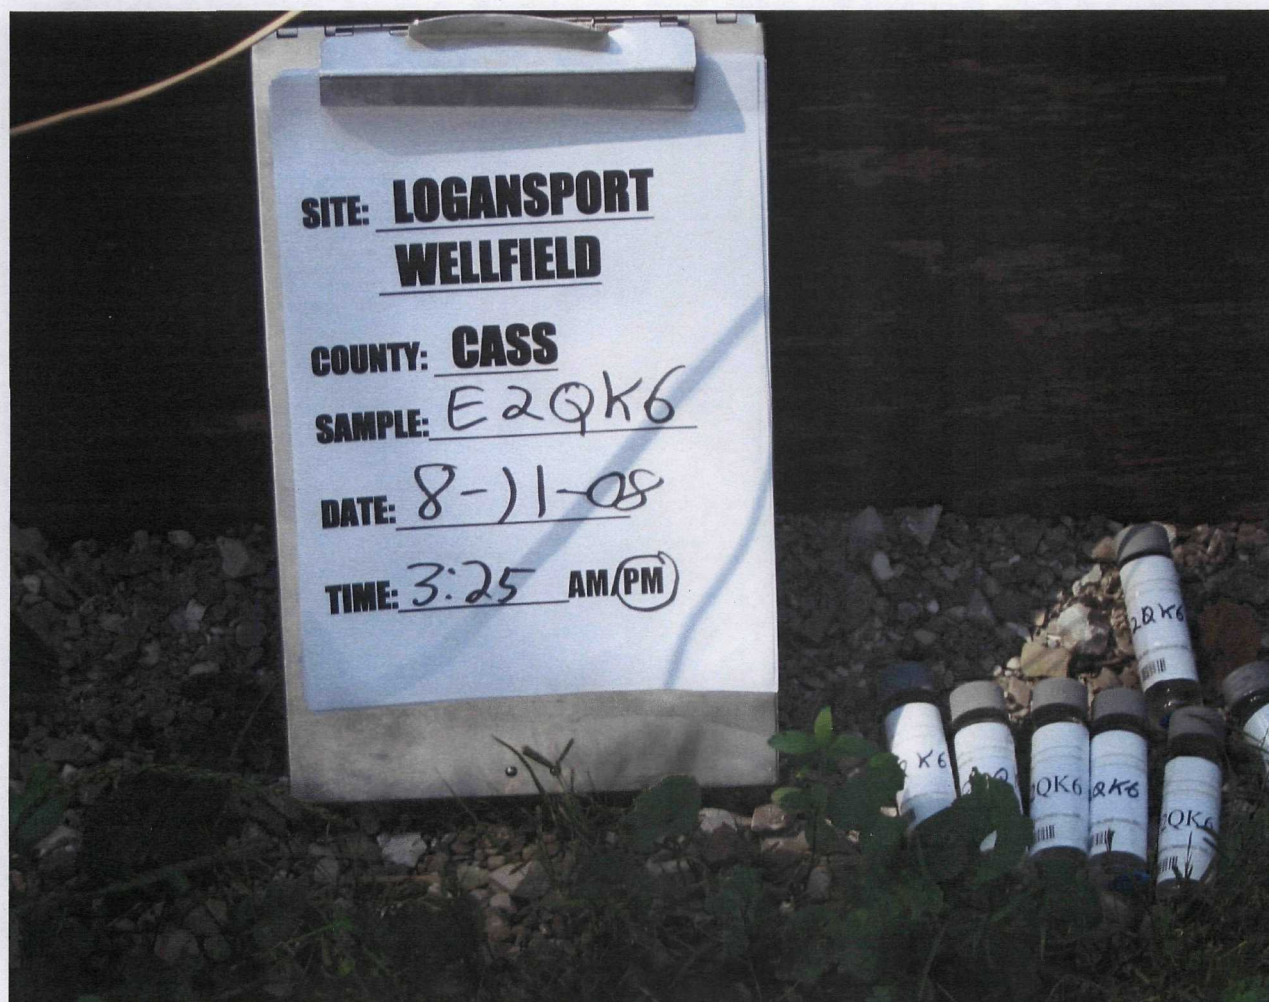 SITE: LOGANSPORT
WELLFIELD
COUNTY: CASS
SAMPLE: E2QK6
DATE: 8-11-08
TIME: 3:25 AM/PM
2QK6
K6
2QK6
QK6
2QK6